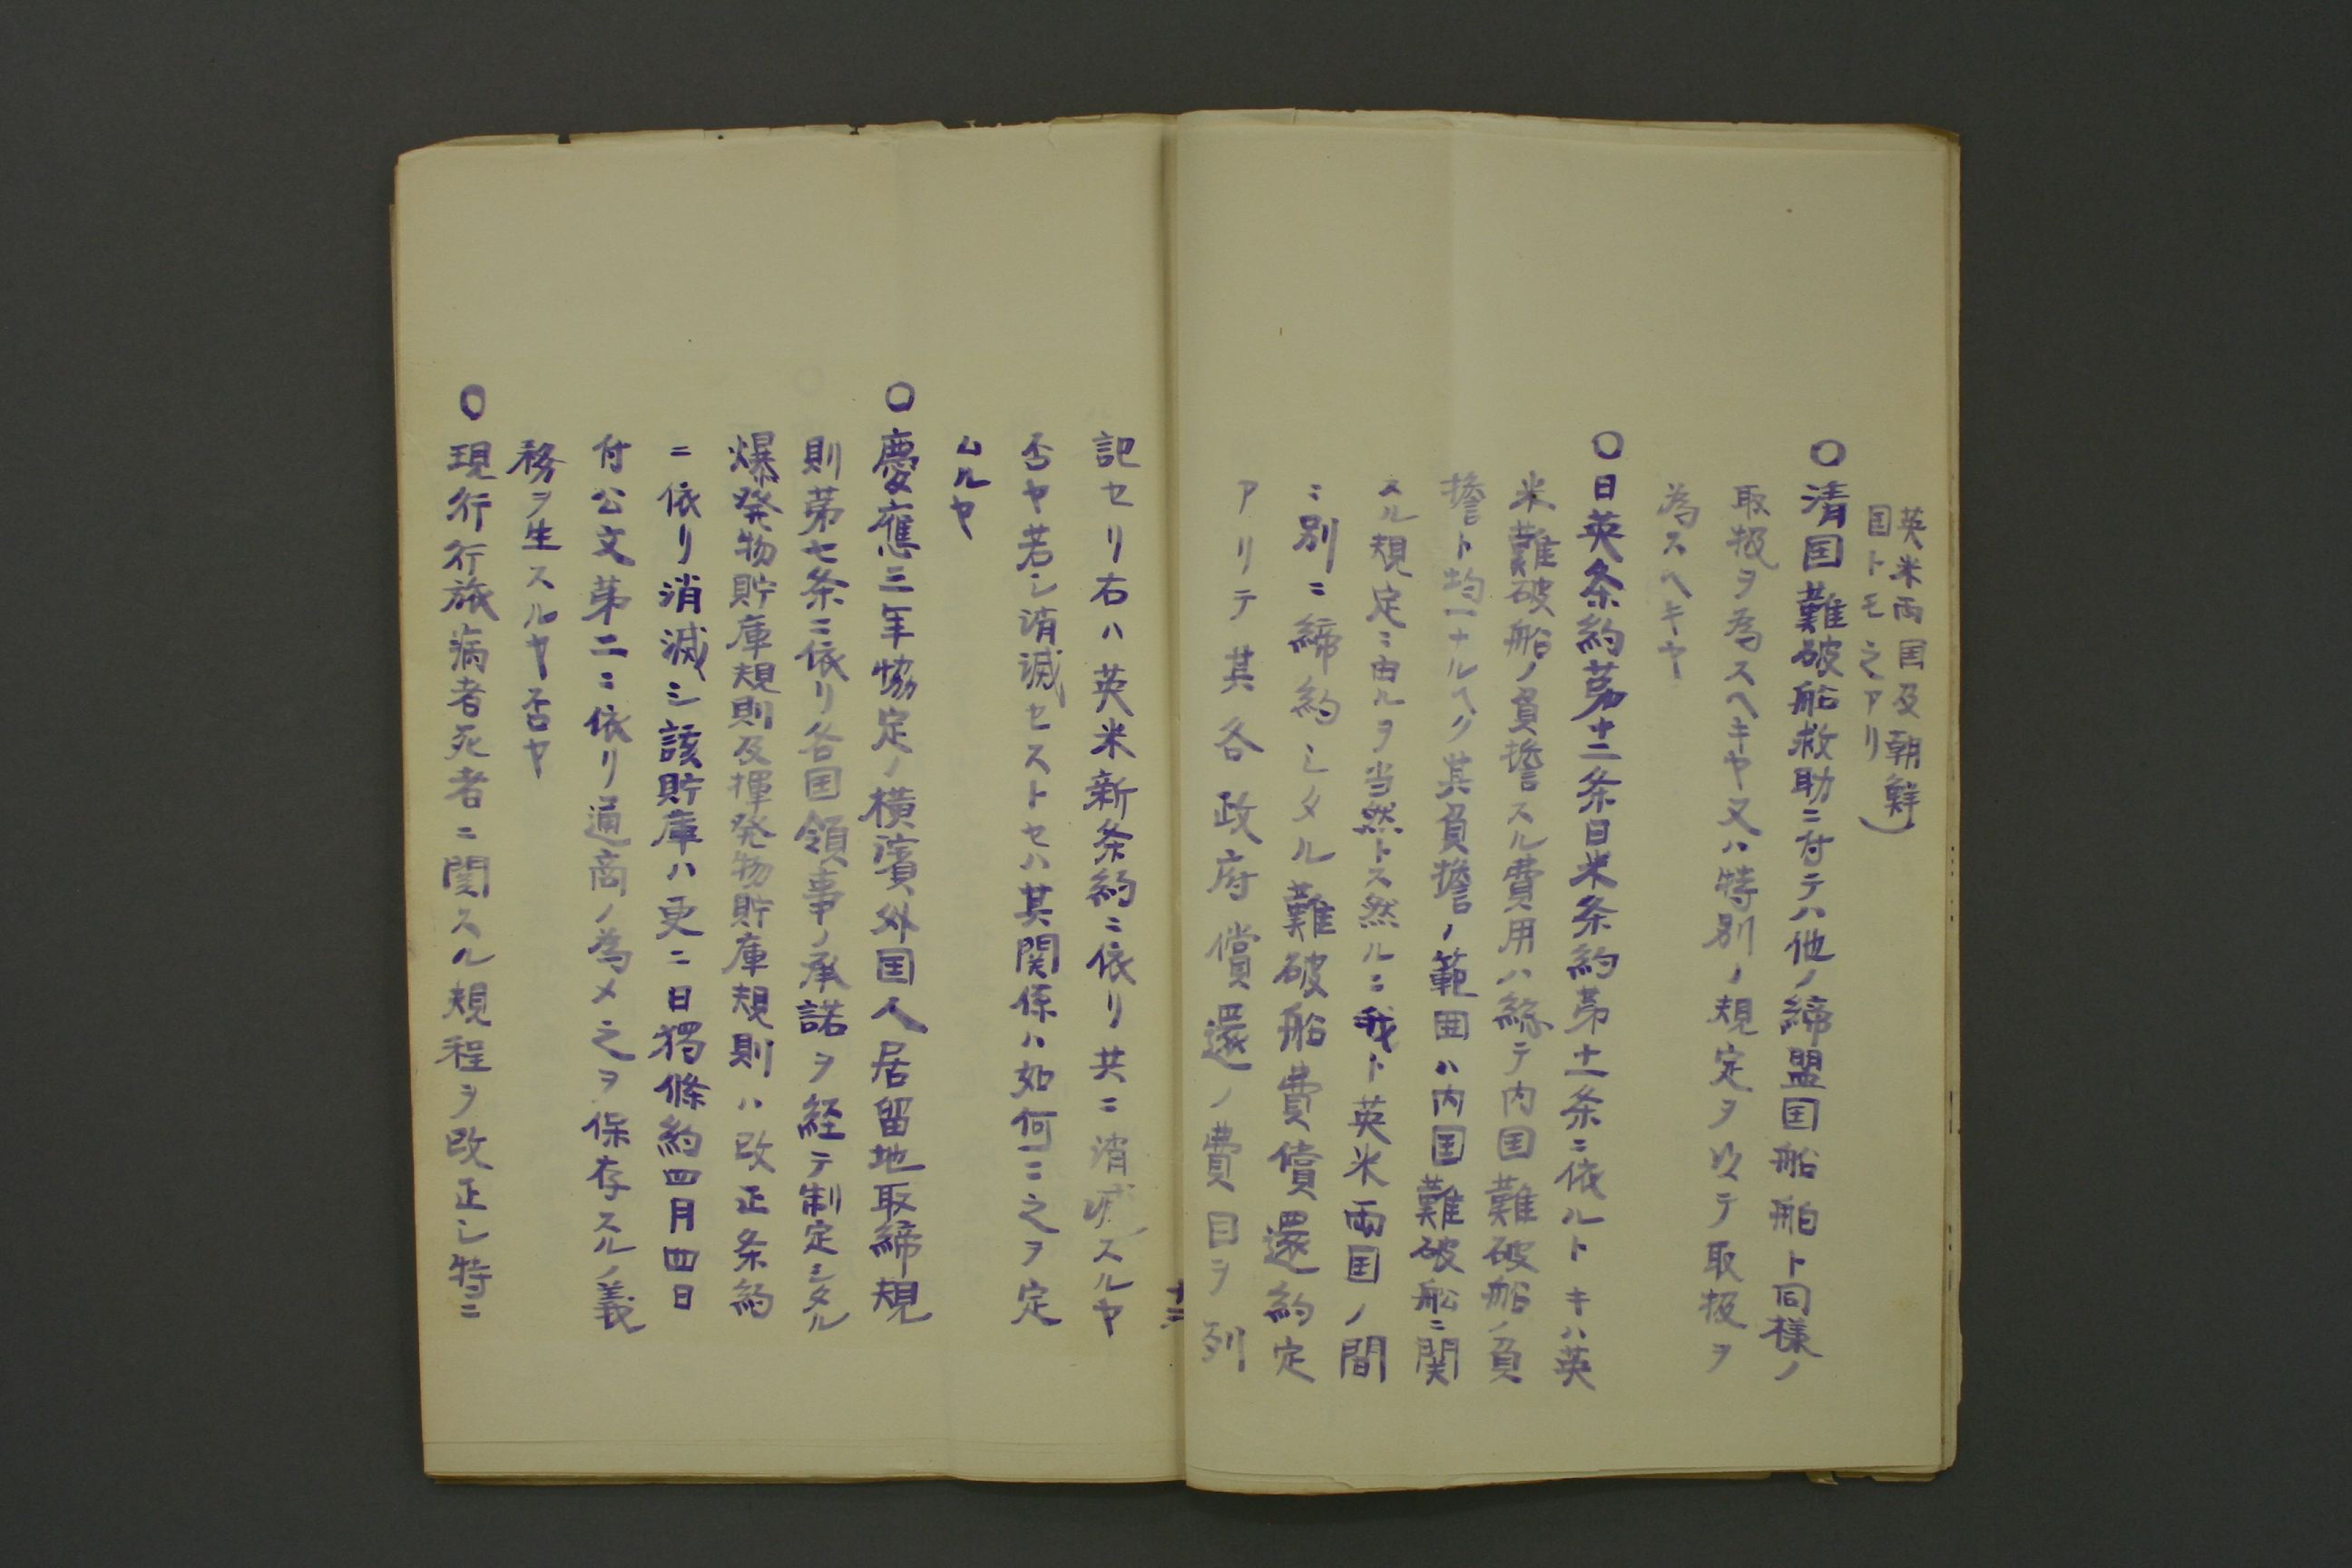 英米両国及朝鮮
国トモ之アリ)
○清国難破船救助ニ付テハ他ノ締盟国船舶ト同様ノ
取扱ヲ為スヘキヤ又ハ特別ノ規定ヲ以テ取扱ヲ
為スヘキヤ
○日英条約第十二条日米条約第十一条ニ依ルトキハ英
米難破船ノ負擔スル費用ハ総テ内国難破船ノ負
擔ト均一ナルヘク其負擔ノ範囲ハ内国難破船ニ関
スル規定ニ由ルヲ当然トス然ルニ我ト英米両国ノ間
ニ別ニ締約シタル難破船費償還約定
アリテ其各政府償還ノ費目ヲ列
十三
記セリ右ハ英米新条約ニ依リ共ニ消滅スルヤ
否ヤ若シ消滅セストセハ其関係ハ如何ニ之ヲ定
ムルヤ
○慶應三年協定ノ横濱外国人居留地取締規
則第七条ニ依リ各国領事ノ承諾ヲ経テ制定シタル
爆発物貯庫規則及揮発物貯庫規則ハ改正条約
ニ依リ消滅シ該貯庫ハ更ニ日獨條約四月四日
付公文第二ニ依リ通商ノ為メ之ヲ保存スルノ義
務ヲ生スルヤ否ヤ
○現行行旅病者死者ニ関スル規程ヲ改正シ特ニ